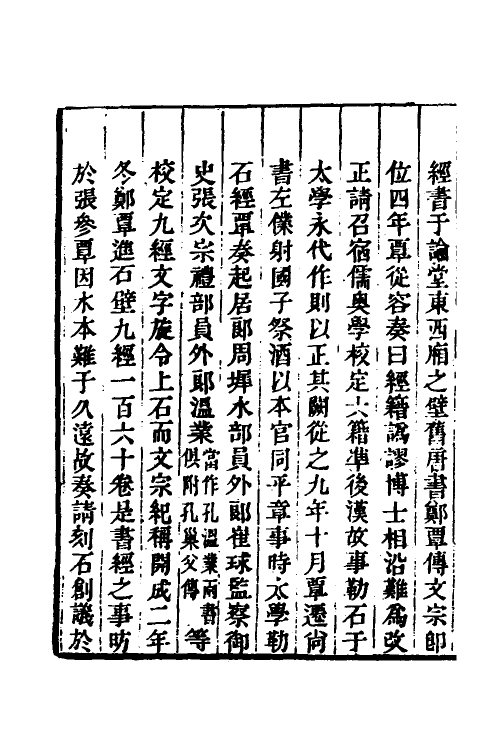 經書于論堂東西廂之壁舊唐書鄭覃傳文宗卽
位四年覃從容奏曰經籍譌謬博士相沿難爲改
正請召宿儒奥學校定六籍準後漢故事勒石于
太學永代作則以正其闕從之九年十月覃遷尙
書左僕射國子祭酒以本官同平章事時太學勒
石經覃奏起居郞周墀水部員外郞崔球監察御
史張次宗禮部員外郞溫業當作孔溫業兩書俱附孔巢父傳等
校定九經文字旋令上石而文宗紀稱開成二年
冬鄭覃進石壁九經一百六十卷是書經之事昉
於張參覃因木本難于久遠故奏請刻石創議於